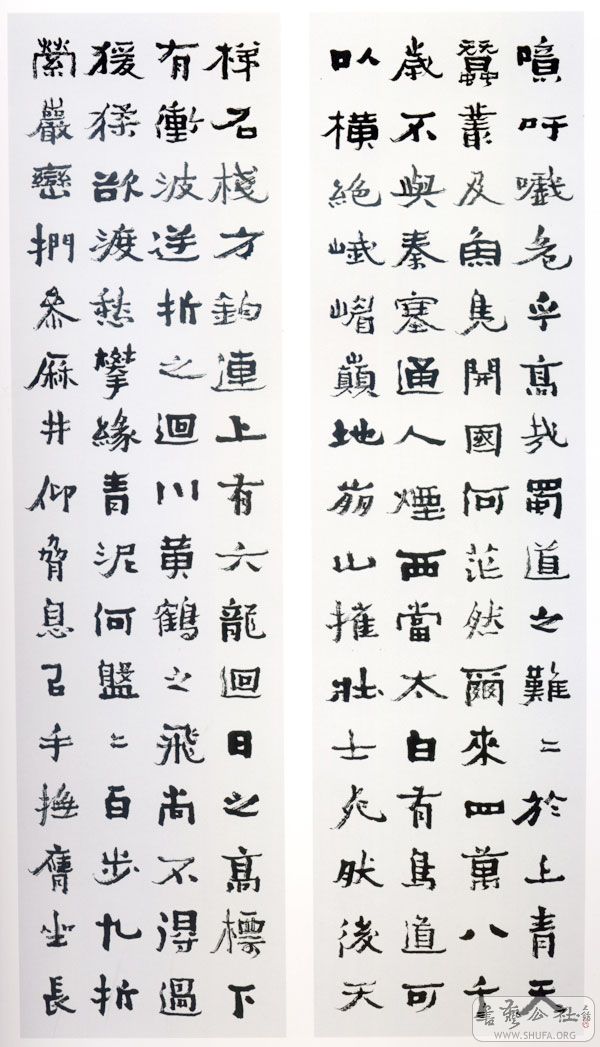 噫吁嚱危乎高哉蜀道之難〻於上青天
蠶叢及魚鳧開國何茫然爾來四萬八千
歲不與秦塞通人煙西當太白有鳥道可
以橫絕峨嵋巔地崩山摧壯士死然後天
梯石棧方鉤連上有六龍迴日之高標下
有衝波逆折之迴川黃鶴之飛尚不得過
猨猱欲渡愁攀緣青泥何盤〻百步九折
縈巖巒捫參厤井仰脅息以手撫膺坐長
書藝公社
WWW.SHUFA.ORG